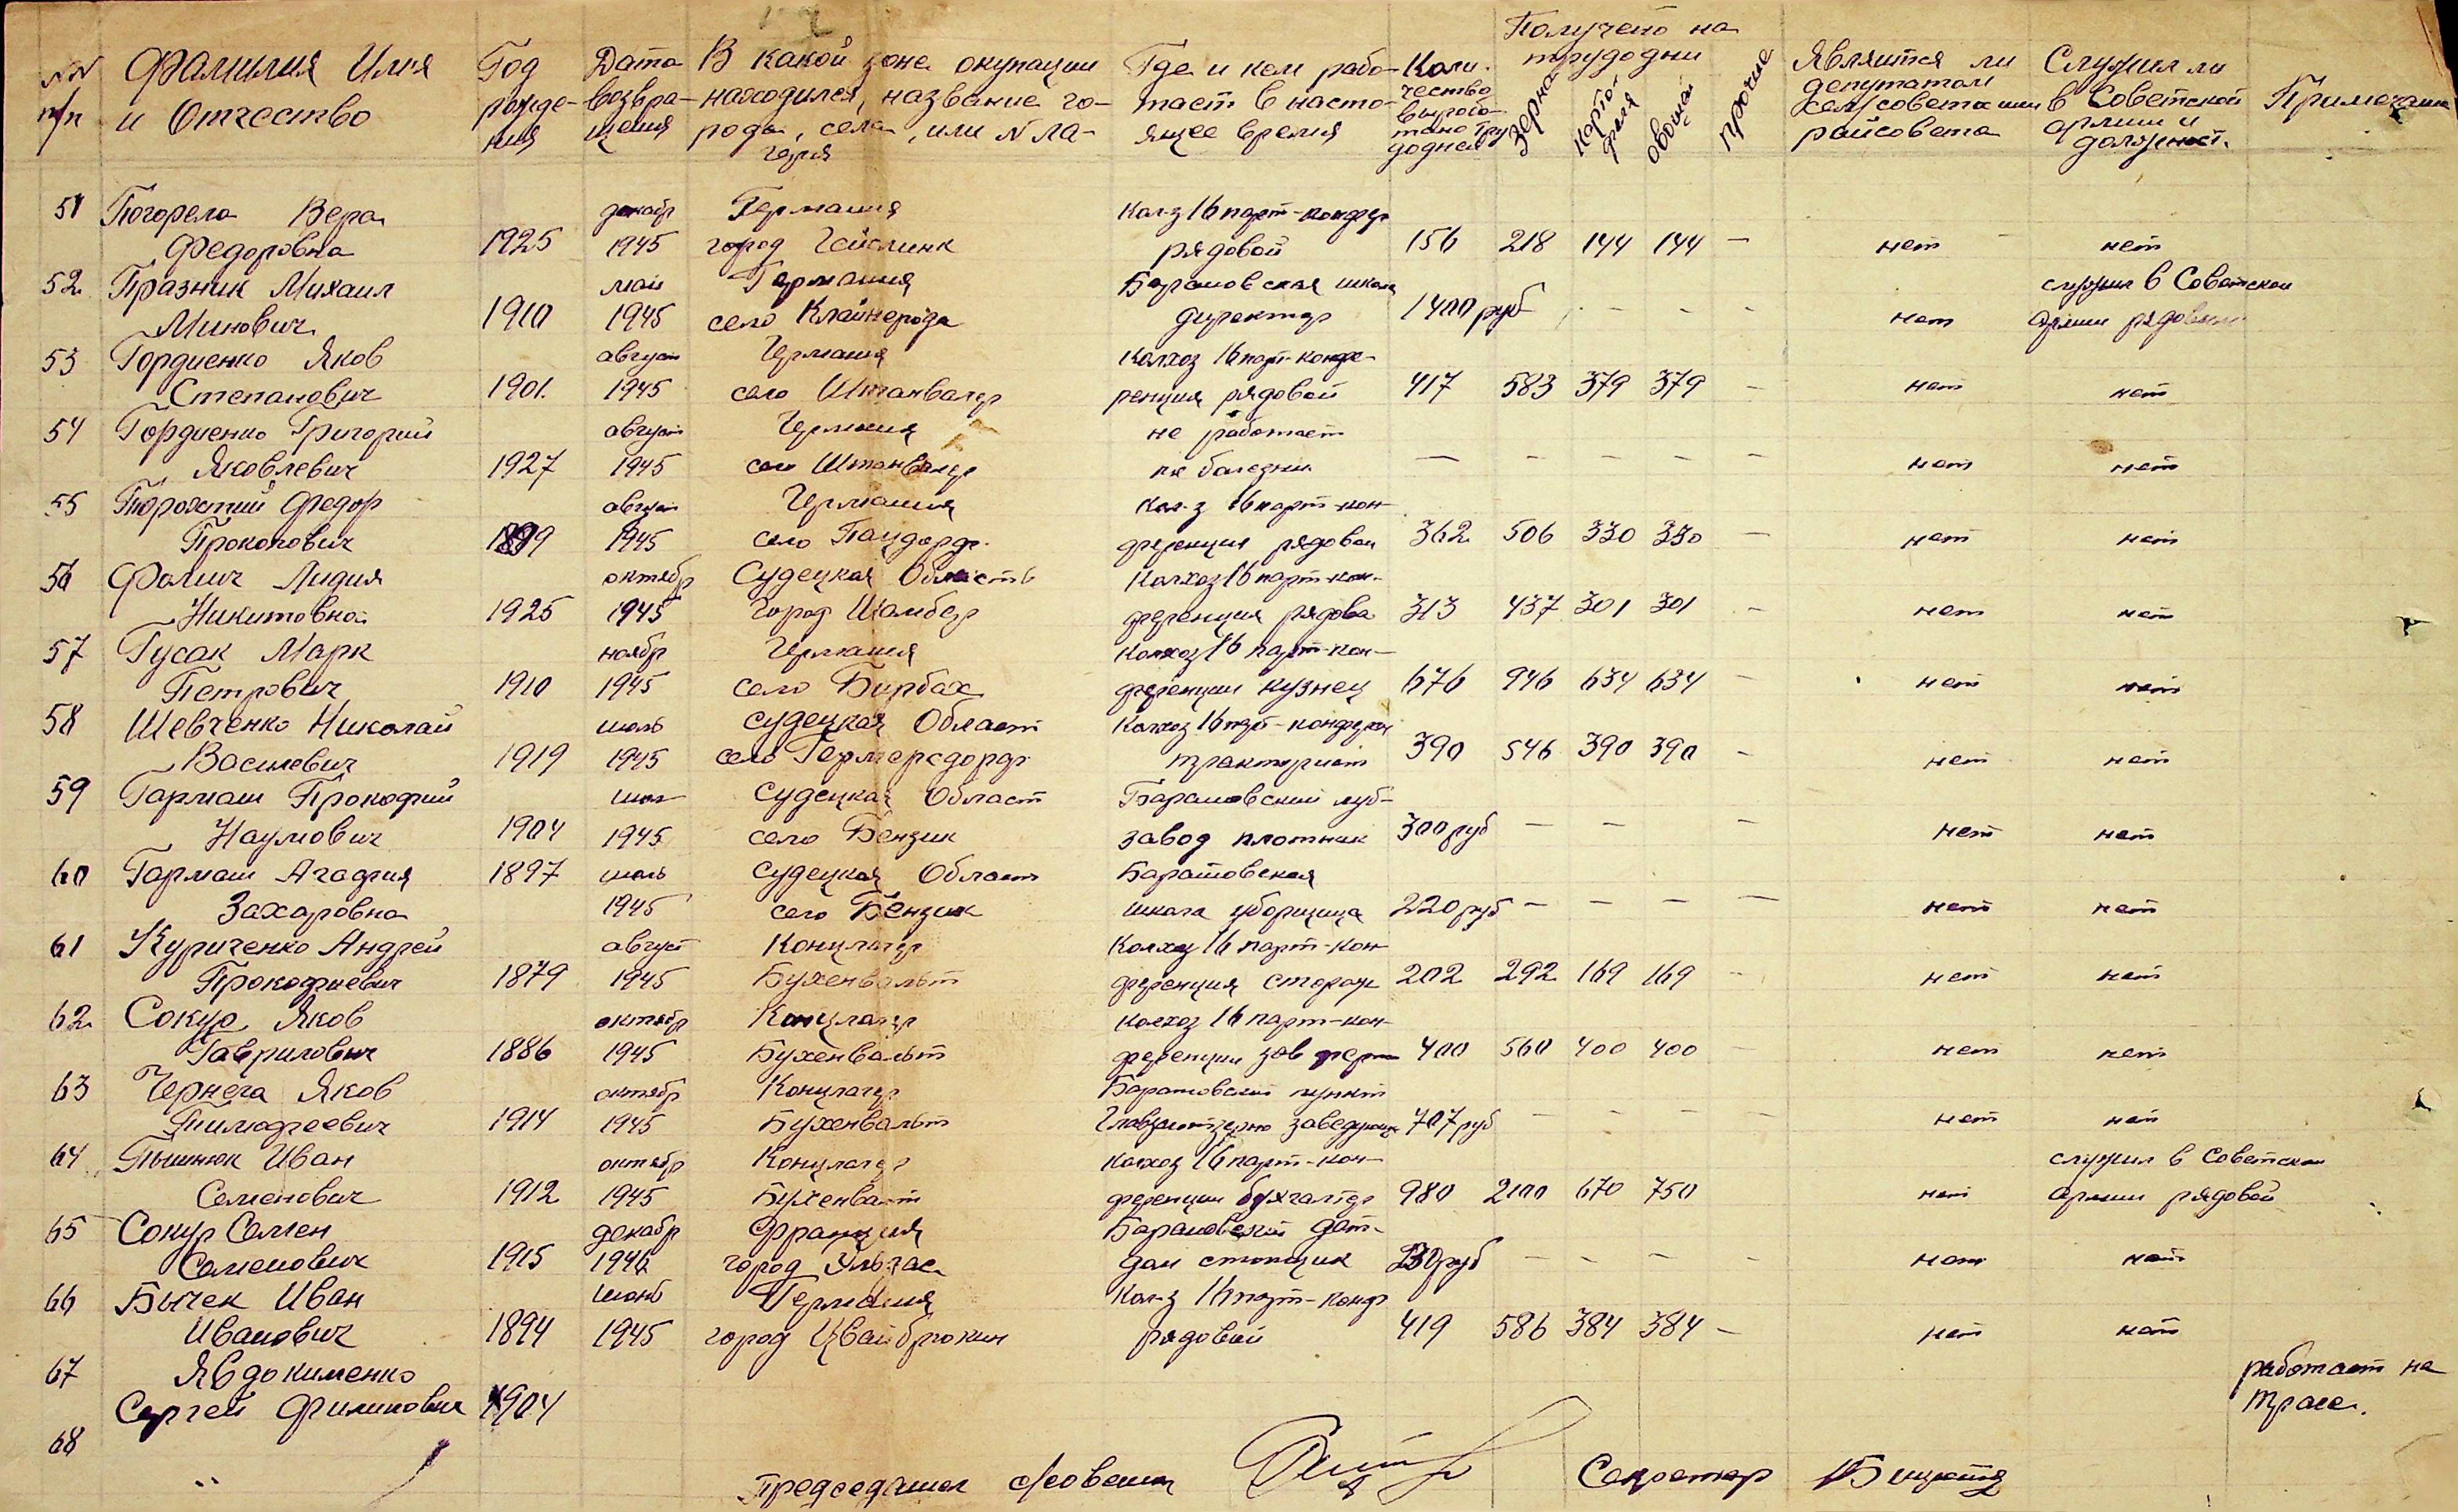 NN п/п Фамилия Имя и Отчество
Год рожде-ния
Дата возвра-щения
В какой зоне окупации находился, название го-рода, села, или N ла-геря
Где и кем рабо-тает в насто-ящее время
Коли-чество вырабо-тано тру додней
Получено на трудодни
зерна картофеля овощей прочие
Является ли депутатом сел/совета или райсовета
Служил ли в Советской армии и должност.
Примечание
51 Погорела Вера декабр Германия Кол-з 16 парт-конфер
Федоровна 1925 1945 город Гайслинк рядовой 156 218 144 144 — нет нет
52 Празник Михаил май Германия Барановская школа служил в Советской
Минович 1910 1945 село Клайнерода директор 1400 руб - - - - нет Армии рядовым
53 Гордиенко Яков август Германия Колхоз 16 парт-конфе-
Степанович 1901. 1945 село Штанвалер ренция рядовой 417 583 379 379 — нет нет
54 Гордиенко Григорий август Германия не работает
Яковлевич 1927 1945 село Штанвалер по болезни — — — — — нет нет
55 Федор август Германия Кол-з 16 парт-кон-
Прокопович 1899 1945 село ференция рядовой 362 506 330 330 — нет нет
56 Фомич Лидия октябр Судецкая Область Колхоз 16 парт-кон-
Никитовна 1925 1945 город Шамбер ференция рядова 313 437 301 301 - нет нет
57 Гусак Марк ноябр Германия Колхоз 16 парт-кон-
Петрович 1910 1945 село Бирбах ференции кузнец 676 946 634 634 - нет нет
58 Шевченко Николай июль Судецкая Област Колхоз 16 парт-конференц
Василевич 1919 1945 село Гермерсдорф тракторист 390 546 390 390 - нет нет
59 Гармаш Прокофий июл Судецкая Област Барановский луб-
Наумович 1904 1945 село Бензик завод плотник 300 руб — — — нет нет
60 Гармаш Агафия 1897 июль Судецкая Област Барановская
Захаровна 1945 село Бензик школа уборщица 220 руб — — — — нет нет
61 Куриченко Андрей август Концлагер Колхоз 16 парт-кон-
Прокофиевич 1879 1945 Бухенвальт ференция сторож 202 292 169 169 - нет нет
62 Сокур Яков октябр Концлагер колхоз 16 парт-кон-
Гаврилович 1886 1945 Бухенвальт ференции зав ферм 400 560 400 400 — нет нет
63 Чернега Яков октябр Концлагер Барановский пункт
Тимофеевич 1914 1945 Бухенвальт заведующ 707 руб — - — — нет нет
64 Пышнюк Иван октябр Концлагер колхоз 16 парт-кон-
Семенович 1912 1945 Бухенвалт ференции бухгалтер 980 2100 670 750 нет служил в Советской армии рядовой
65 Сокур Семен декабр Франция Барановский дет-
Семенович 1915 1946 город Эльзас дом стопщик руб — - — - нет нет
66 Бычек Иван июнь Германия Кол-з 16 парт-конф
Иванович 1894 1945 город Цвайбрюкин рядовой 419 586 384 384 — нет нет
67 Явдокименко работает на
Сергей Филипович 1904 трасе.
68
Председател с/совета Секретар